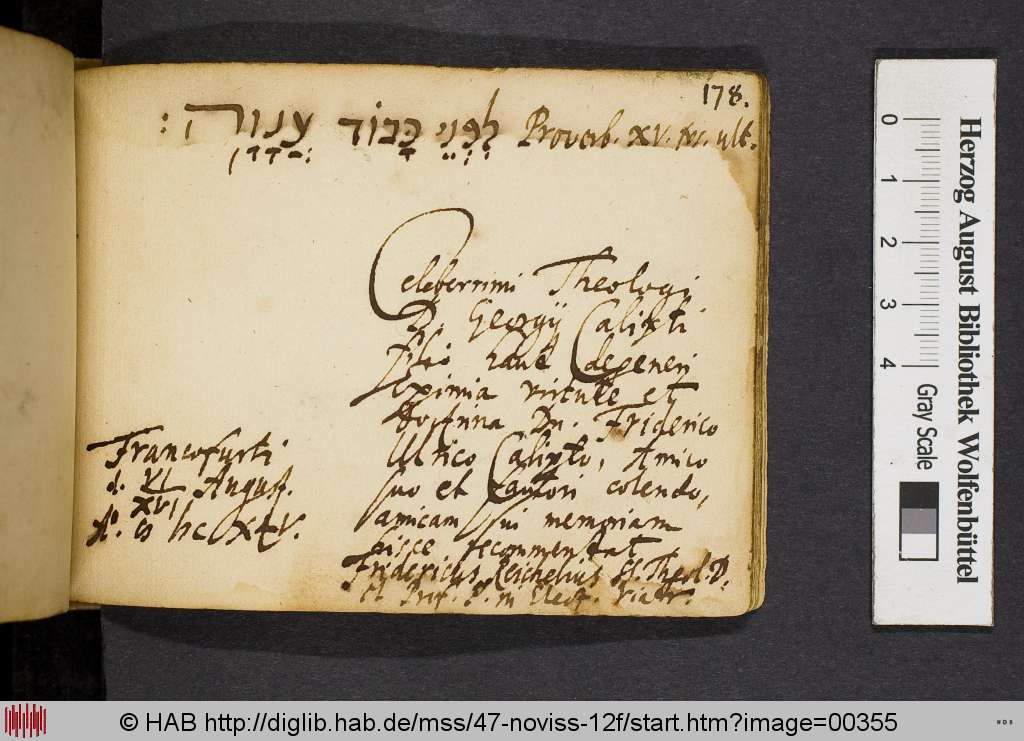 178.
לִפְנֵי כָבוֹד עֲנָוָה : Proverb. XV. ult.
Celeberrimi Theologi
D. Georgij Calixti
filio haud degeneri
eximia virtute et
doctrina Dn. Friderico
Ulrico Calixto, Amico
suo et Fautori colendo,
amicam sui memoriam
hisce recommendat
Fridericus Reichelius SS. Theol. D.
et Prof. P. in Elect. Viadr.
Francofurti
d. VI
XVI August.
Ao.
Herzog August Bibliothek Wolfenbüttel
0 1 2 3 4
Gray Scale
© HAB http://diglib.hab.de/mss/47-noviss-12f/start.htm?image=00355